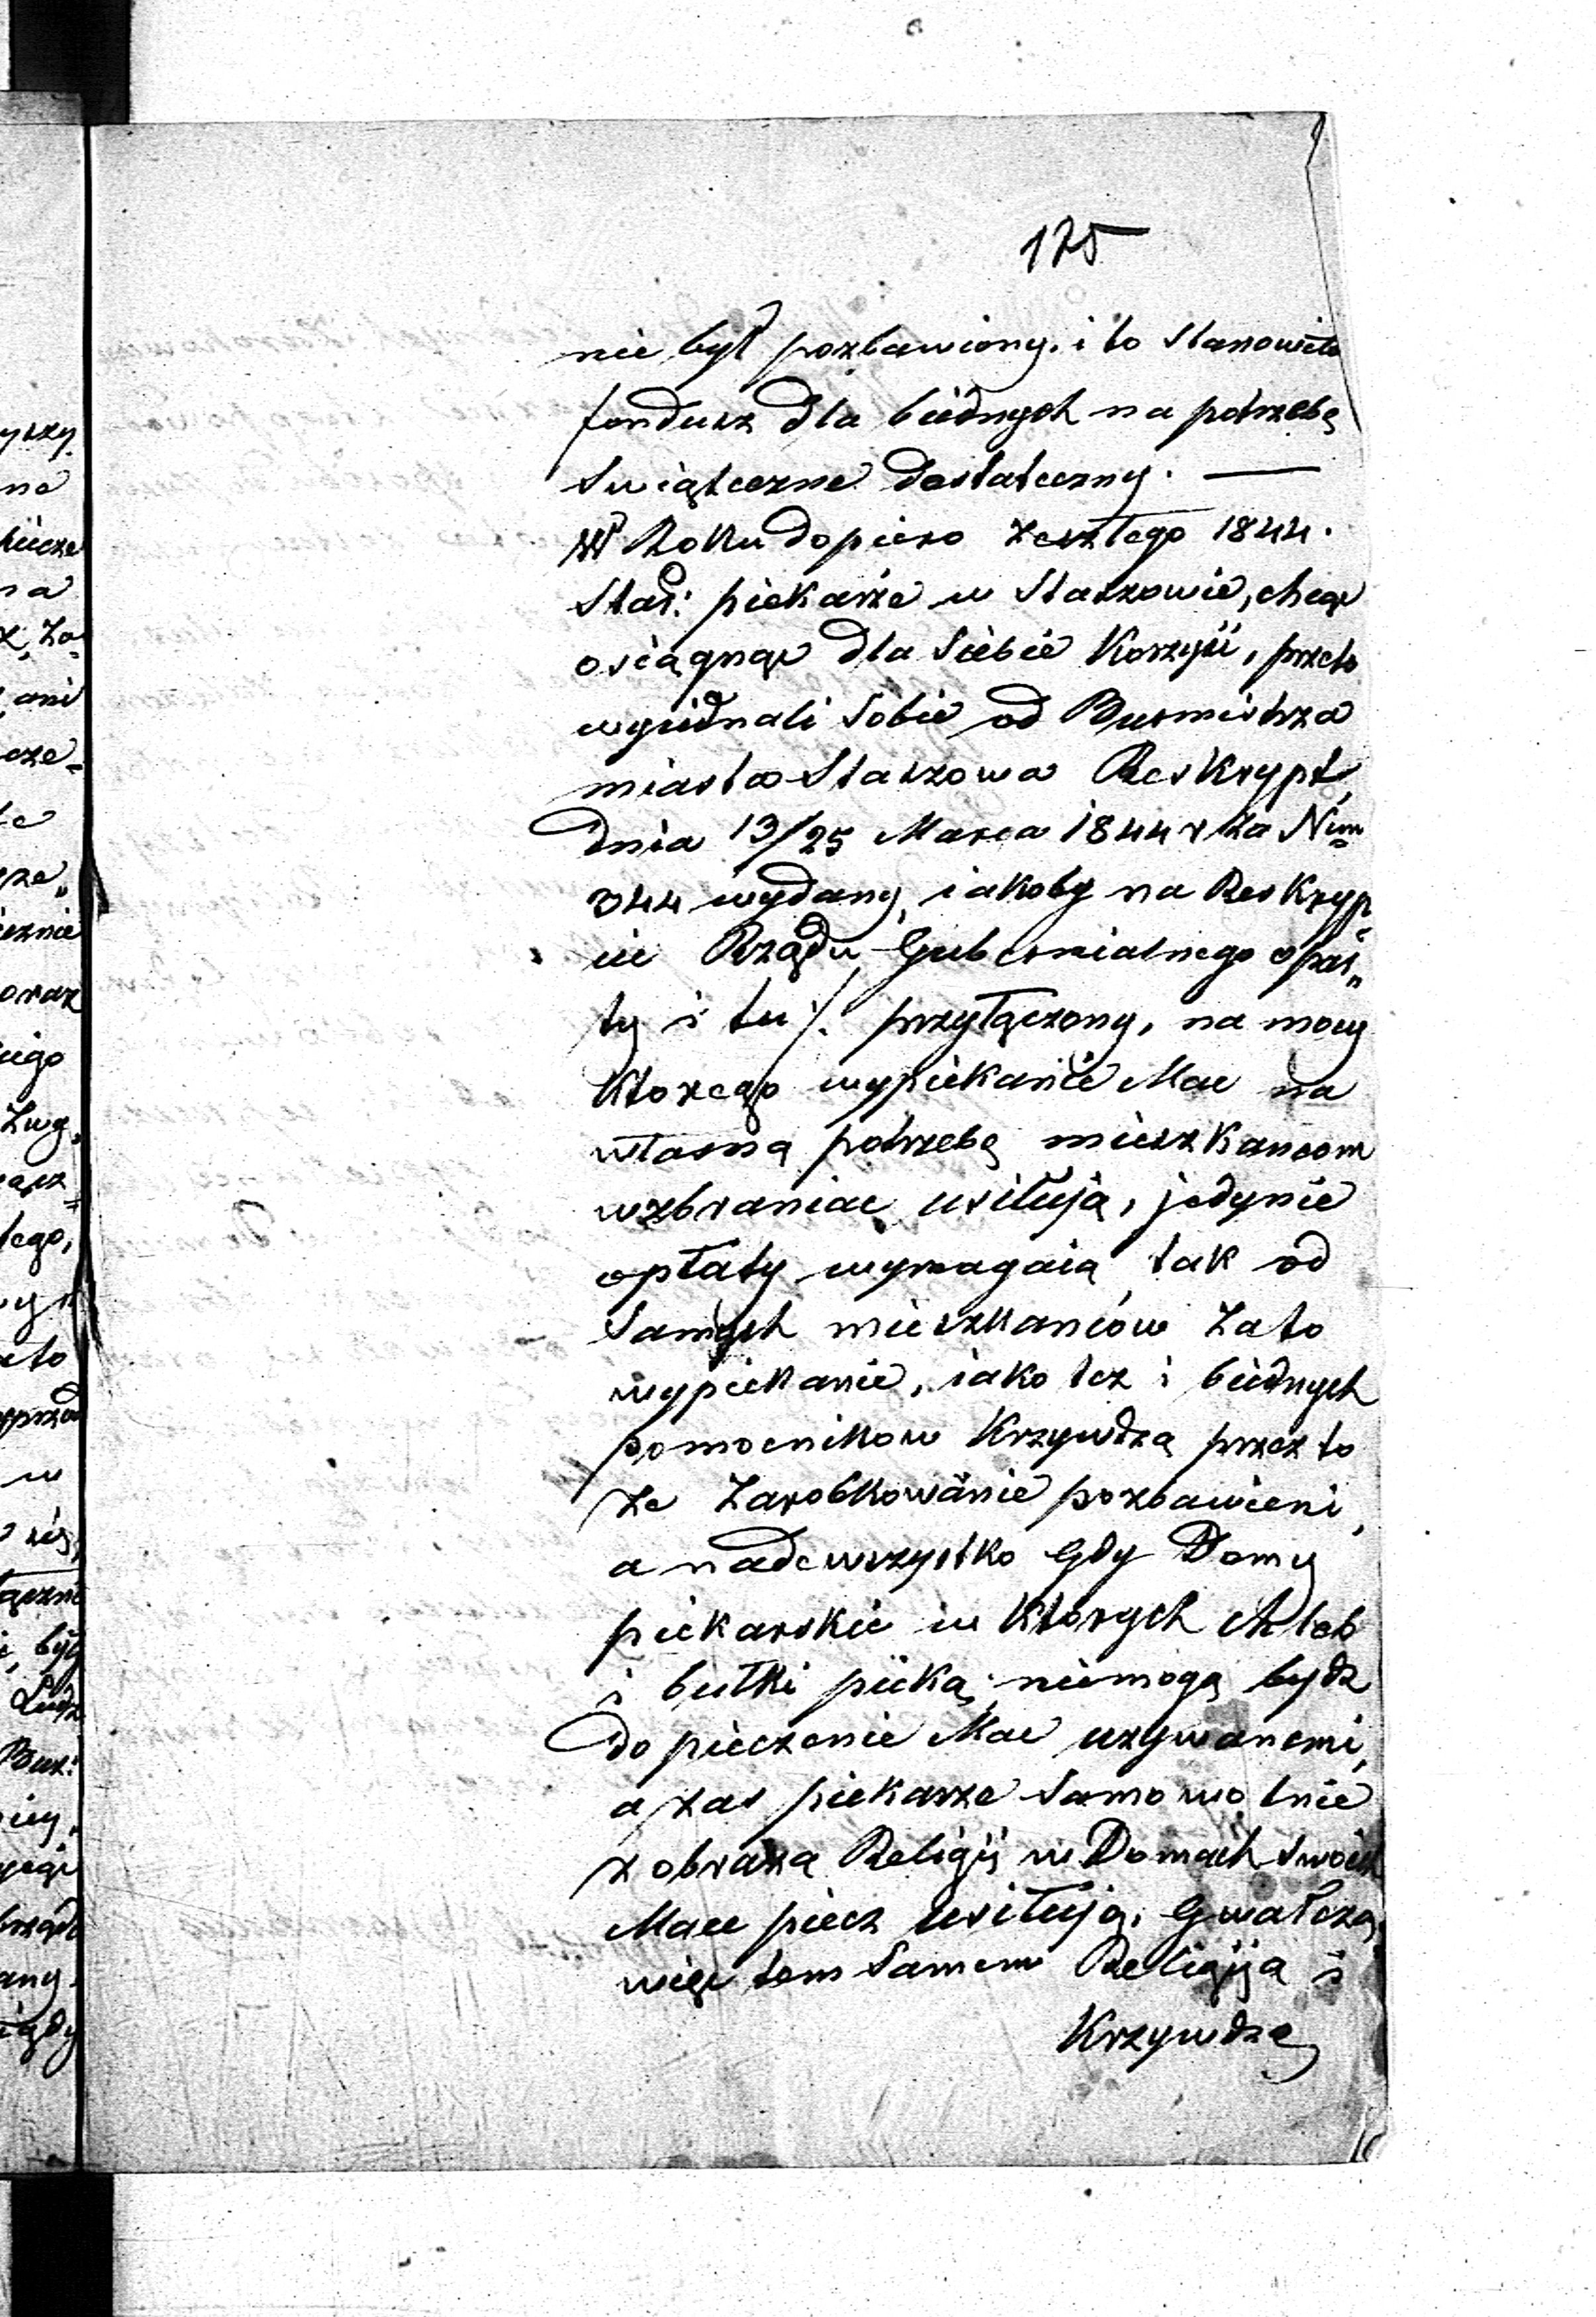 175
nie był pozbawiony. i to stanowiło
fondusz dla biednych na potrzebę
Swiąteczne dostateczny. —
W Roku dopiero zeszłego 1844.
Star: piekarze w Staszowie, chcąc
osiągnąc dla Siebie Korzyści, przeto
wyiednali Sobie od Burmistrza
miasta Staszowa Reskrypt
dnia 13/25 Marca 1844 r Za Num
344 wydany, iakoby na Reskryp
cie Rządu Gubernialnego opar„
ty i tu /. przyłączony, na mocy
Ktorego wypiekanie Mac na
własną potrzebę mieszkancom
wzbraniac usiłują, jedynie
opłaty wymagaią tak od
Samych mieszkanców Zato
wypiekanie, iako tez i biednych
pomocnikow Krzywdzą przez to
ze Zarobkowanie pozbawieni,
a nadewszystko Gdy Domy
piekarskie w Ktorych Chleb
i bułki pieką, niemogą bydz
do pieczenie Mac uzywanemi,
a zas piekarze Samowolnie
z obrazą Religii w Domach swoich
Mace piecz usiłują, Gwałczą,
więc tem Samem Religiją i
Krzywdzą
yszy
na
ani
cze=
oraz
tego,
w